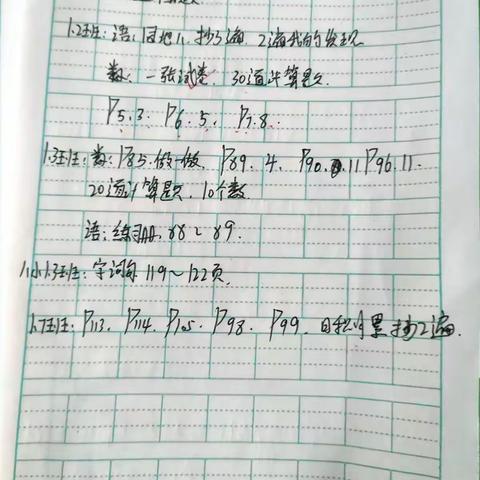 1.2班: 语: 园地八, 抄3遍, 2遍我的发现
数: 一张试卷, 30道计算题.
P5.3. P6. 5. P7.8.
1.3班: 数: P85.做一做. P89. 4. P90. 11 P96.11.
20道计算题. 10个数.
语: 练习册. 88~89.
1.3班: 字词句 119~122页.
1.7班: P113. P114. P105. P98. P99. 日积月累抄2遍.